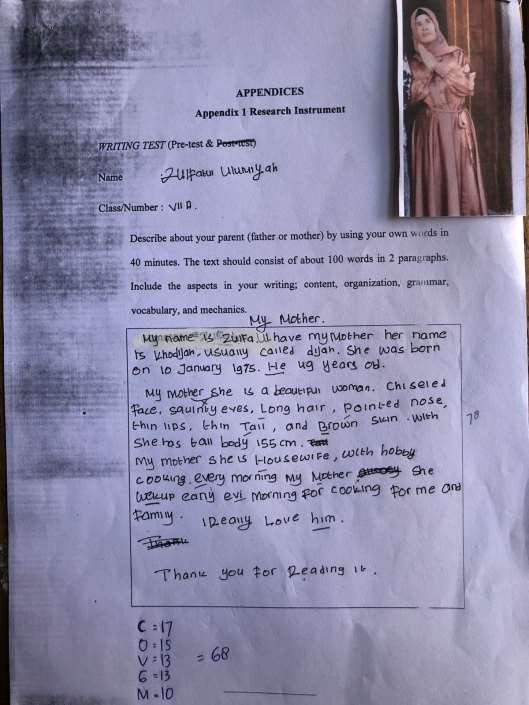 APPENDICES
Appendix 1 Research Instrument
WRITING TEST (Pre-test & Post-test)
Name : Zulfatul Ulumiyah
Class/Number : VII A.
Describe about your parent (father or mother) by using your own words in
40 minutes. The text should consist of about 100 words in 2 paragraphs.
Include the aspects in your writing; content, organization, grammar,
vocabulary, and mechanics.
My Mother.
My name is Zulfa, I have my Mother her name
is Khodijah, usually called dijah. She was born
on 10 January 1975. He 49 years old.
My mother she is a beautiful woman. Chiseled
face, squinty eyes, Long hair, pointed nose,
thin lips, thin Tail, and Brown skin. with
She has tall body 155 cm.
My mother she is Housewife, with hobby
cooking, every morning my Mother She
wakup early morning for cooking for me and
family. I Really Love him.
Thank you for Reading it.
78
C = 17
O = 15
V = 13
G = 13
M = 10
= 68